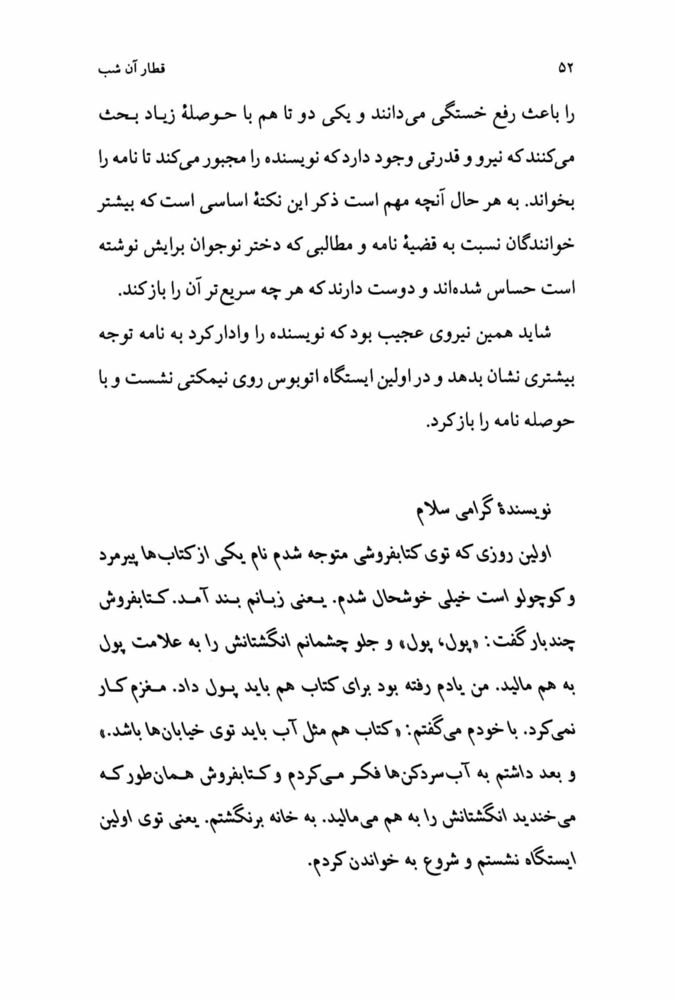 ۵۲ قطار آن شب
را باعث رفع خستگی می‌دانند و یکی دو تا هم با حوصلهٔ زیاد بحث
می‌کنند که نیرو و قدرتی وجود دارد که نویسنده را مجبور می‌کند تا نامه را
بخواند. به هر حال آنچه مهم است ذکر این نکتهٔ اساسی است که بیشتر
خوانندگان نسبت به قضیهٔ نامه و مطالبی که دختر نوجوان برایش نوشته
است حساس شده‌اند و دوست دارند که هر چه سریع‌تر آن را باز کند.
شاید همین نیروی عجیب بود که نویسنده را وادار کرد به نامه توجه
بیشتری نشان بدهد و در اولین ایستگاه اتوبوس روی نیمکتی نشست و با
حوصله نامه را باز کرد.
نویسندهٔ گرامی سلام
اولین روزی که توی کتابفروشی متوجه شدم نام یکی از کتاب‌ها پیرمرد
و کوچولو است خیلی خوشحال شدم. یعنی زبانم بند آمد. کتابفروش
چندبار گفت: «پول، پول» و جلو چشمانم انگشتانش را به علامت پول
به هم مالید. من یادم رفته بود برای کتاب هم باید پول داد. مغزم کار
نمی‌کرد. با خودم می‌گفتم: «کتاب هم مثل آب باید توی خیابان‌ها باشد.»
و بعد داشتم به آب‌سردکن‌ها فکر می‌کردم و کتابفروش همان‌طور که
می‌خندید انگشتانش را به هم می‌مالید. به خانه برنگشتم. یعنی توی اولین
ایستگاه نشستم و شروع به خواندن کردم.